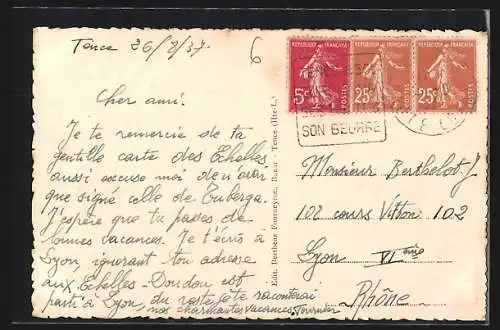 Tence 26/8/37
6
Cher ami.
Je te remercie de ta
gentille carte des Echelles
aussi excuse moi de n'avoir
que signé celle de Tuberga.
J'espère que tu passes de
bonnes vacances. Je t'écris à
Lyon, ignorant ton adresse
aux Echelles. Doudou est
parti à Lyon, du reste je te raconterai
nos charmantes vacances
Edit. Deribeus Fourneyron, Bazar - Tence (Hte-L.)
REPUBLIQUE FRANÇAISE
5c
POSTES
REPUBLIQUE FRANÇAISE
25c
POSTES
REPUBLIQUE FRANÇAISE
25c
POSTES
SON BEURRE
Monsieur Berthelot J.
102 cours Vitton 102
Lyon VIème
Rhône